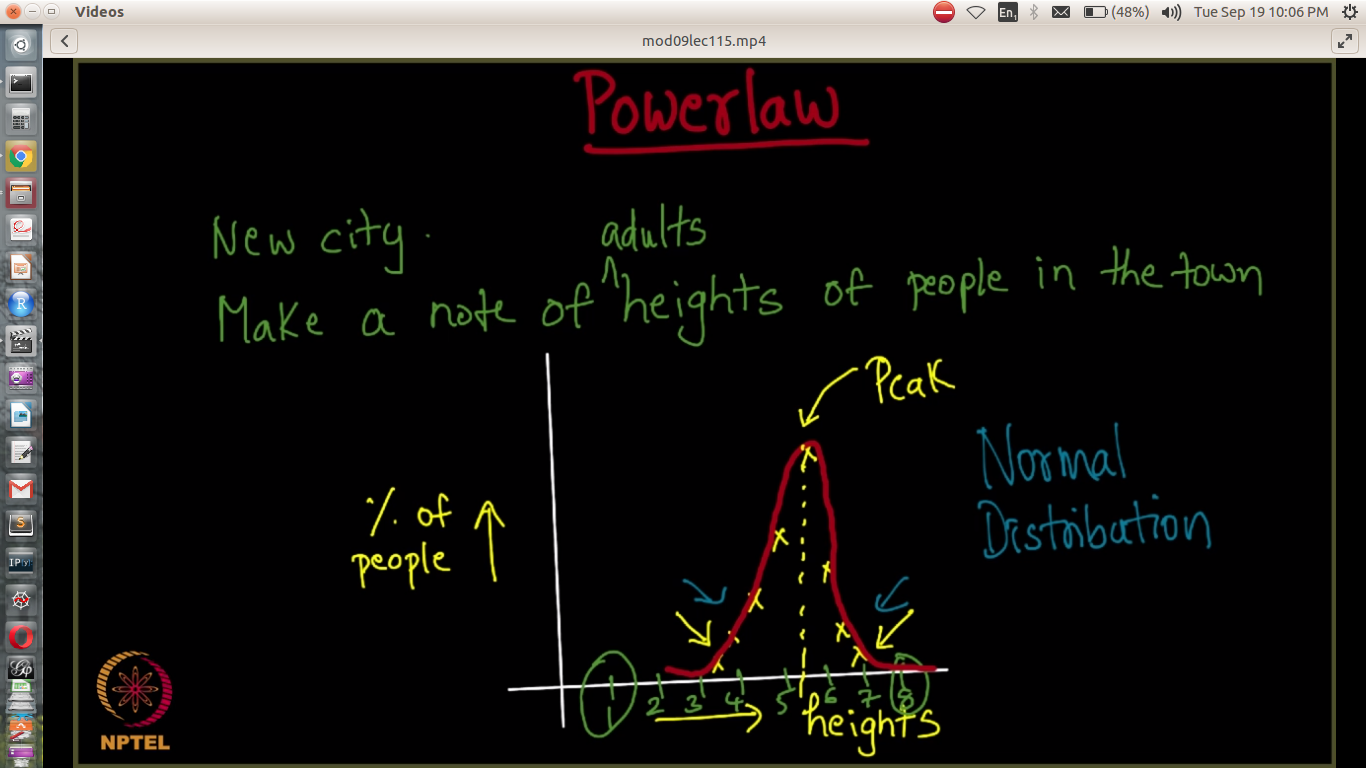 Videos
En1
(48%)
Tue Sep 19 10:06 PM
mod09lec115.mp4
Powerlaw
New city.
adults
Make a note of ^ heights of people in the town
Peak
Normal
Distribution
% of
people
1 2 3 4 5 6 7 8
heights
NPTEL